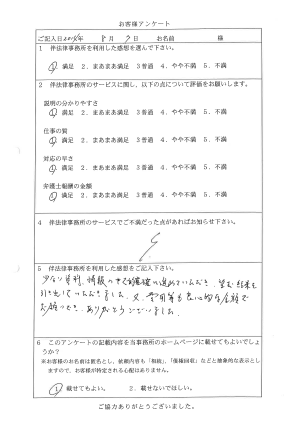 お客様アンケート
ご記入日2014年 8月 9日 お名前 様
1 伴法律事務所を利用した感想を選んで下さい。
① 満足 2．まあまあ満足 3 普通 4．やや不満 5．不満
2 伴法律事務所のサービスに関し、以下の点について評価をお願いします。
説明の分かりやすさ
① 満足 2．まあまあ満足 3 普通 4．やや不満 5．不満
仕事の質
① 満足 2．まあまあ満足 3 普通 4．やや不満 5．不満
対応の早さ
① 満足 2．まあまあ満足 3 普通 4．やや不満 5．不満
弁護士報酬の金額
① 満足 2．まあまあ満足 3 普通 4．やや不満 5．不満
4 伴法律事務所のサービスでご不満だった点があればお知らせ下さい。
5 伴法律事務所を利用した感想をご記入下さい。
少ない資料、情報の中で的確に進めていただき、望む結果を
引き出していただきました。又、費用等も良心的な金額で
お願いでき、ありがとうございました。
6 このアンケートの記載内容を当事務所のホームページに載せてもよいでしょ
うか？
※お客様のお名前は匿名とし、依頼内容も「相続」、「債権回収」などと抽象的な表示とし
ますので、お客様が特定される心配はありません。
① 載せてもよい。 2．載せないでほしい。
ご協力ありがとうございました。